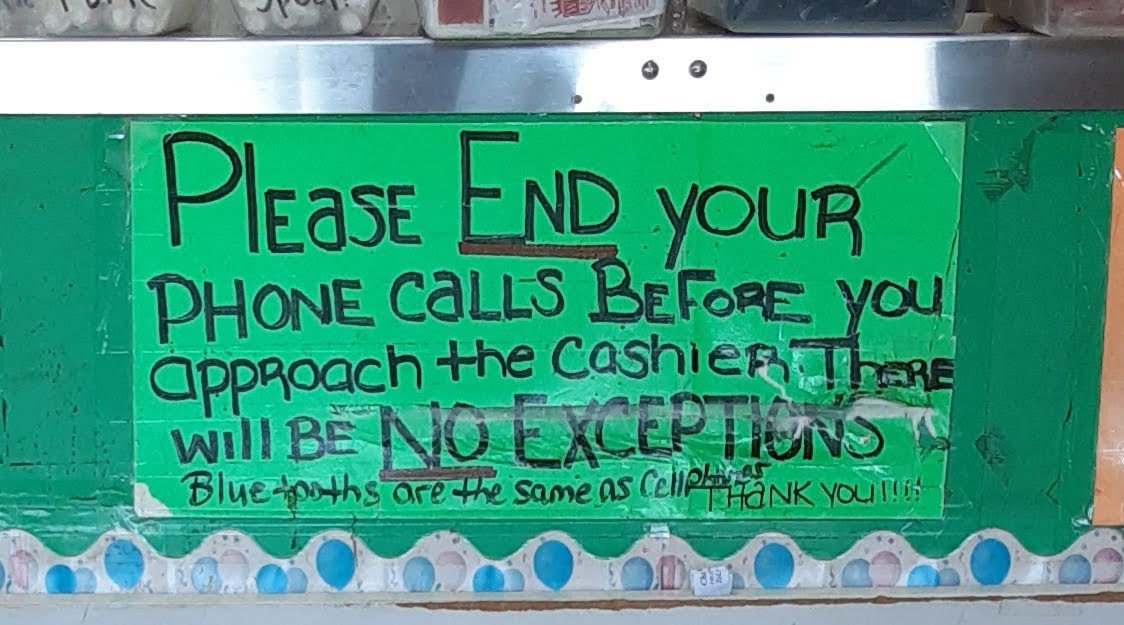 PLEASE END YOUR
PHONE CALLS BEFORE YOU
approach the Cashier THERE
will BE NO EXCEPTIONS
Bluetooths are the same as Cellphones
THANK YOU!!!!